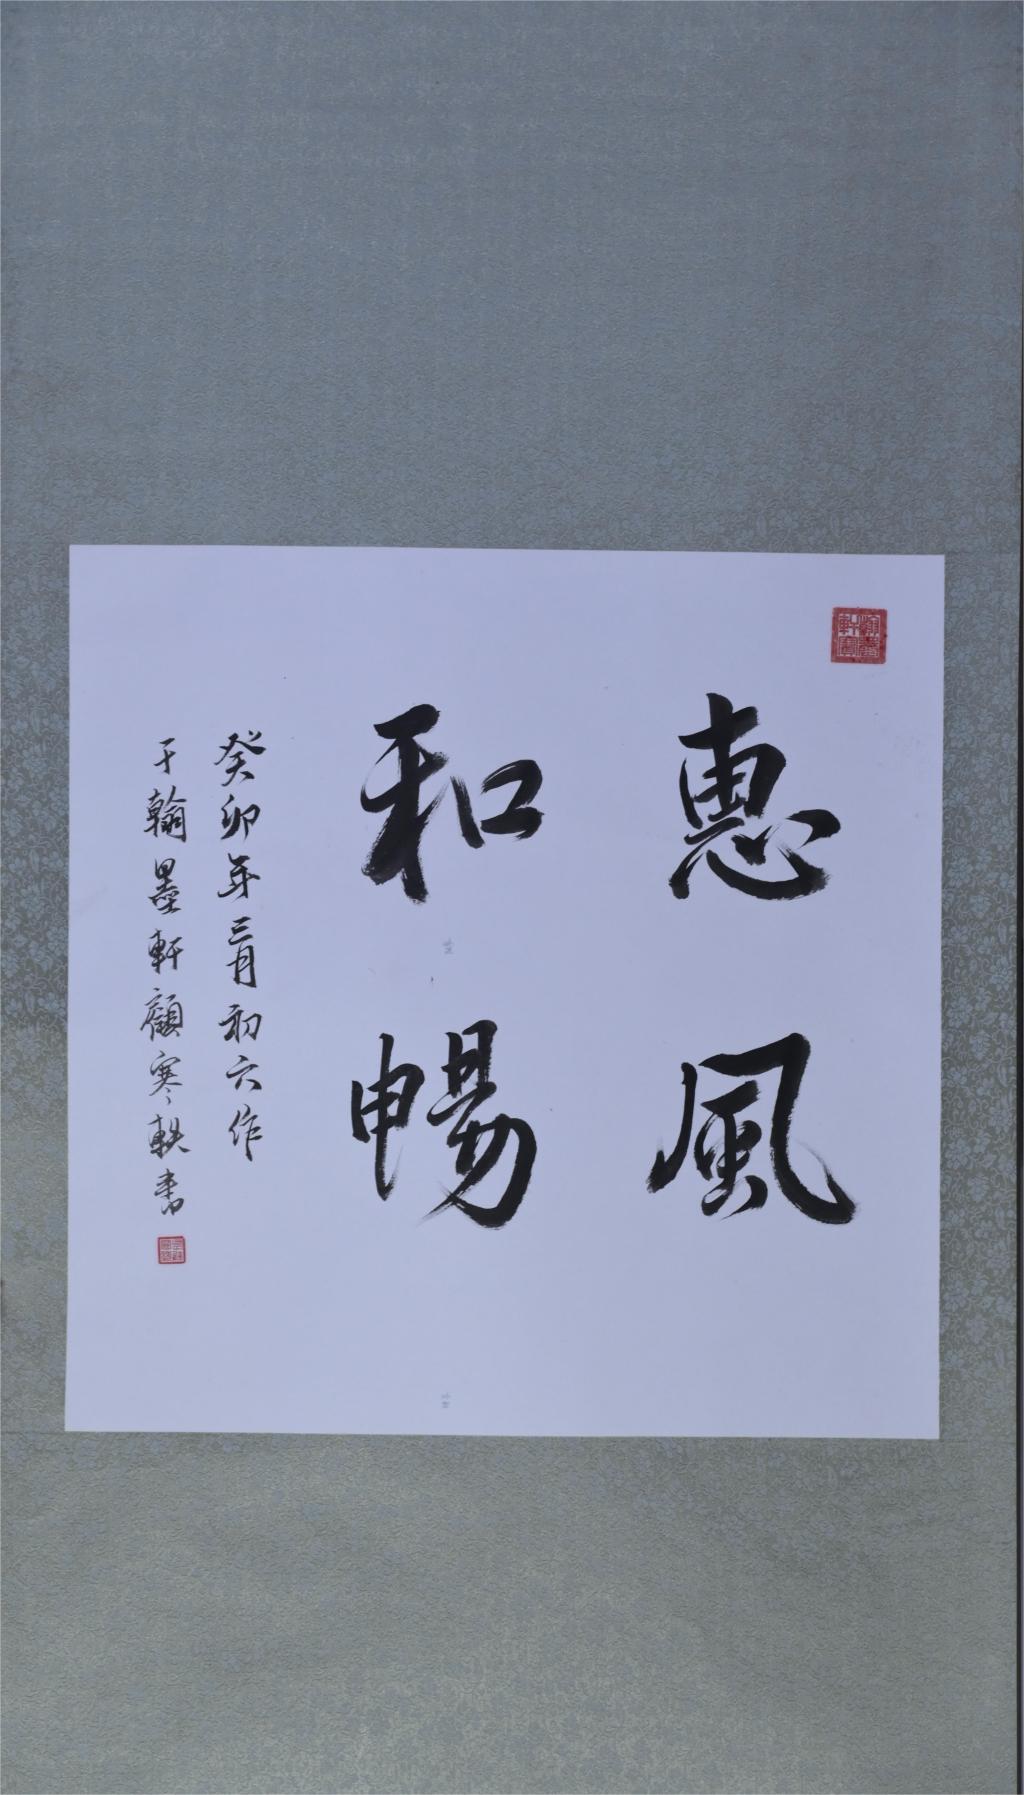 惠風
和暢
癸卯年三月初六作
于翰墨軒顧寒軼書